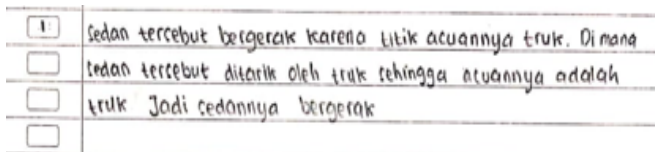 1. Sedan tersebut bergerak karena titik acuannya truk. Dimana
sedan tersebut ditarik oleh truk sehingga acuannya adalah
truk Jadi sedannya bergerak